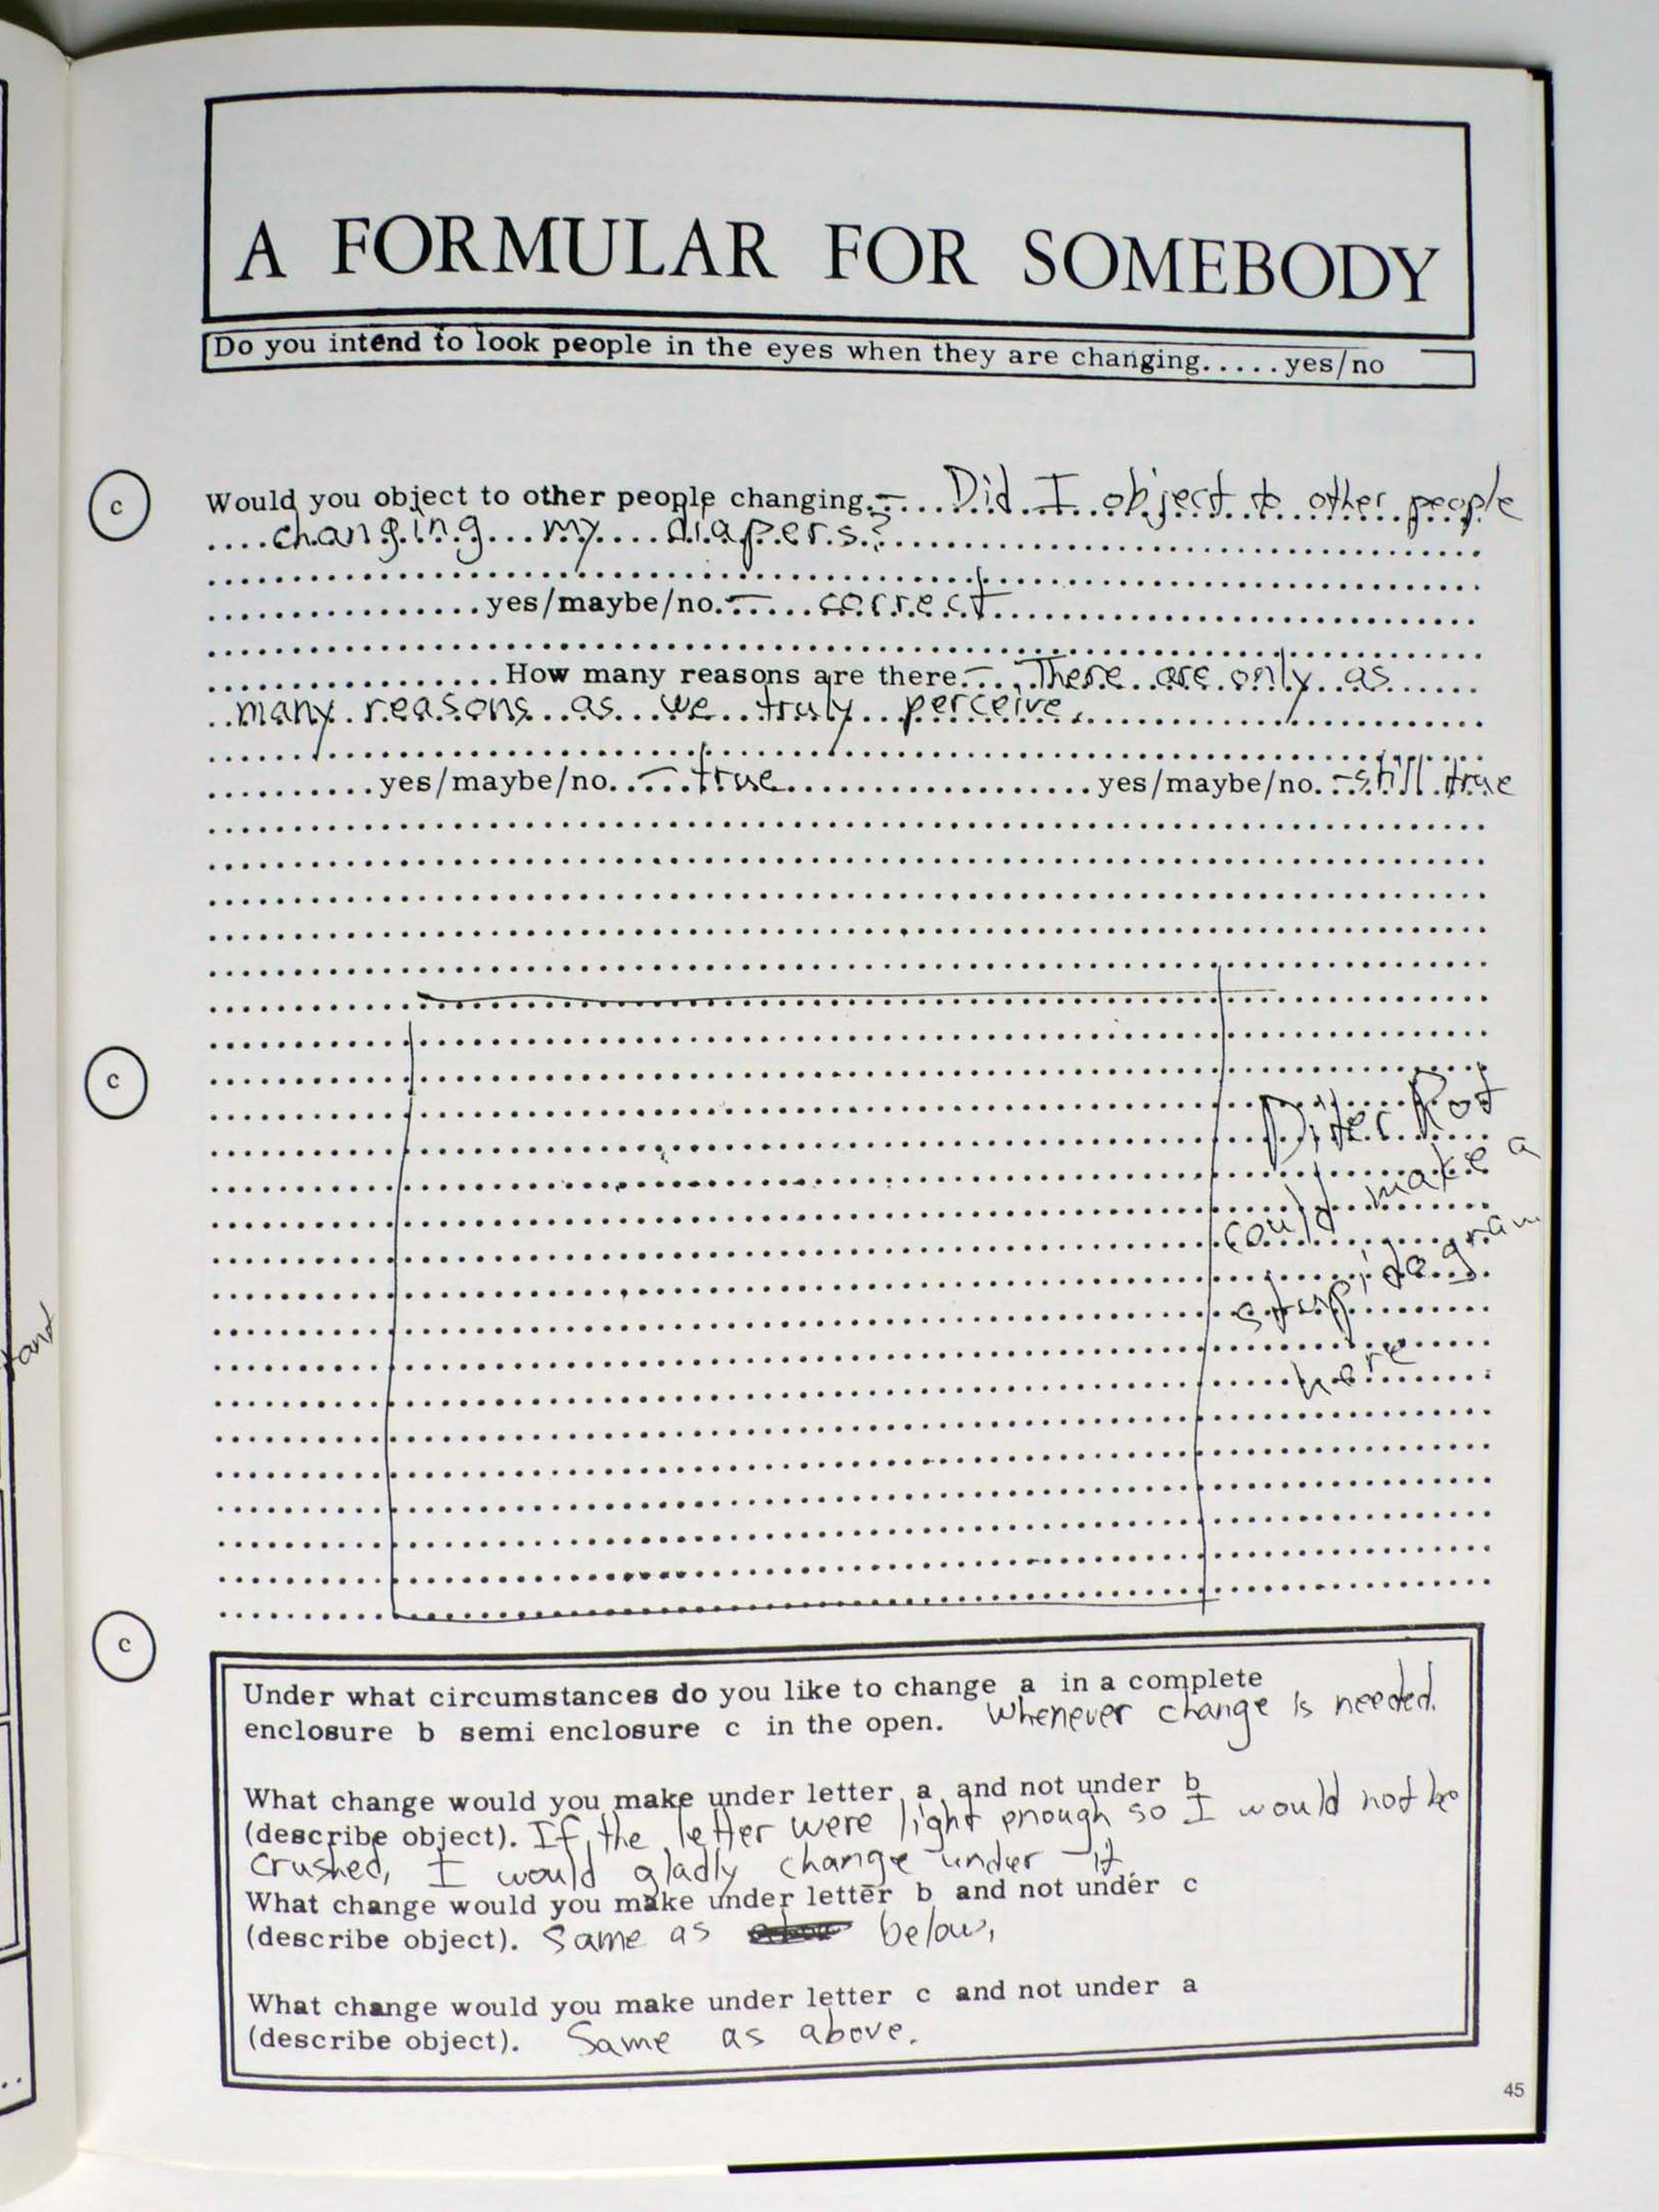 A FORMULAR FOR SOMEBODY
Do you intend to look people in the eyes when they are changing.....yes/no
c
Would you object to other people changing.–....Did I object to other people
changing my diapers?
yes/maybe/no.–....correct
How many reasons are there.–..There are only as
many reasons as we truly perceive.
yes/maybe/no..–..true....................yes/maybe/no.–still true
c
Diter Rot
could make a
stupidagram
here
and
c
Under what circumstances do you like to change a in a complete
enclosure b semi enclosure c in the open. Whenever change is needed.
What change would you make under letter a and not under b
(describe object). If the letter were light enough so I would not be
crushed, I would gladly change under it.
What change would you make under letter b and not under c
(describe object). Same as below.
What change would you make under letter c and not under a
(describe object). Same as above.
45